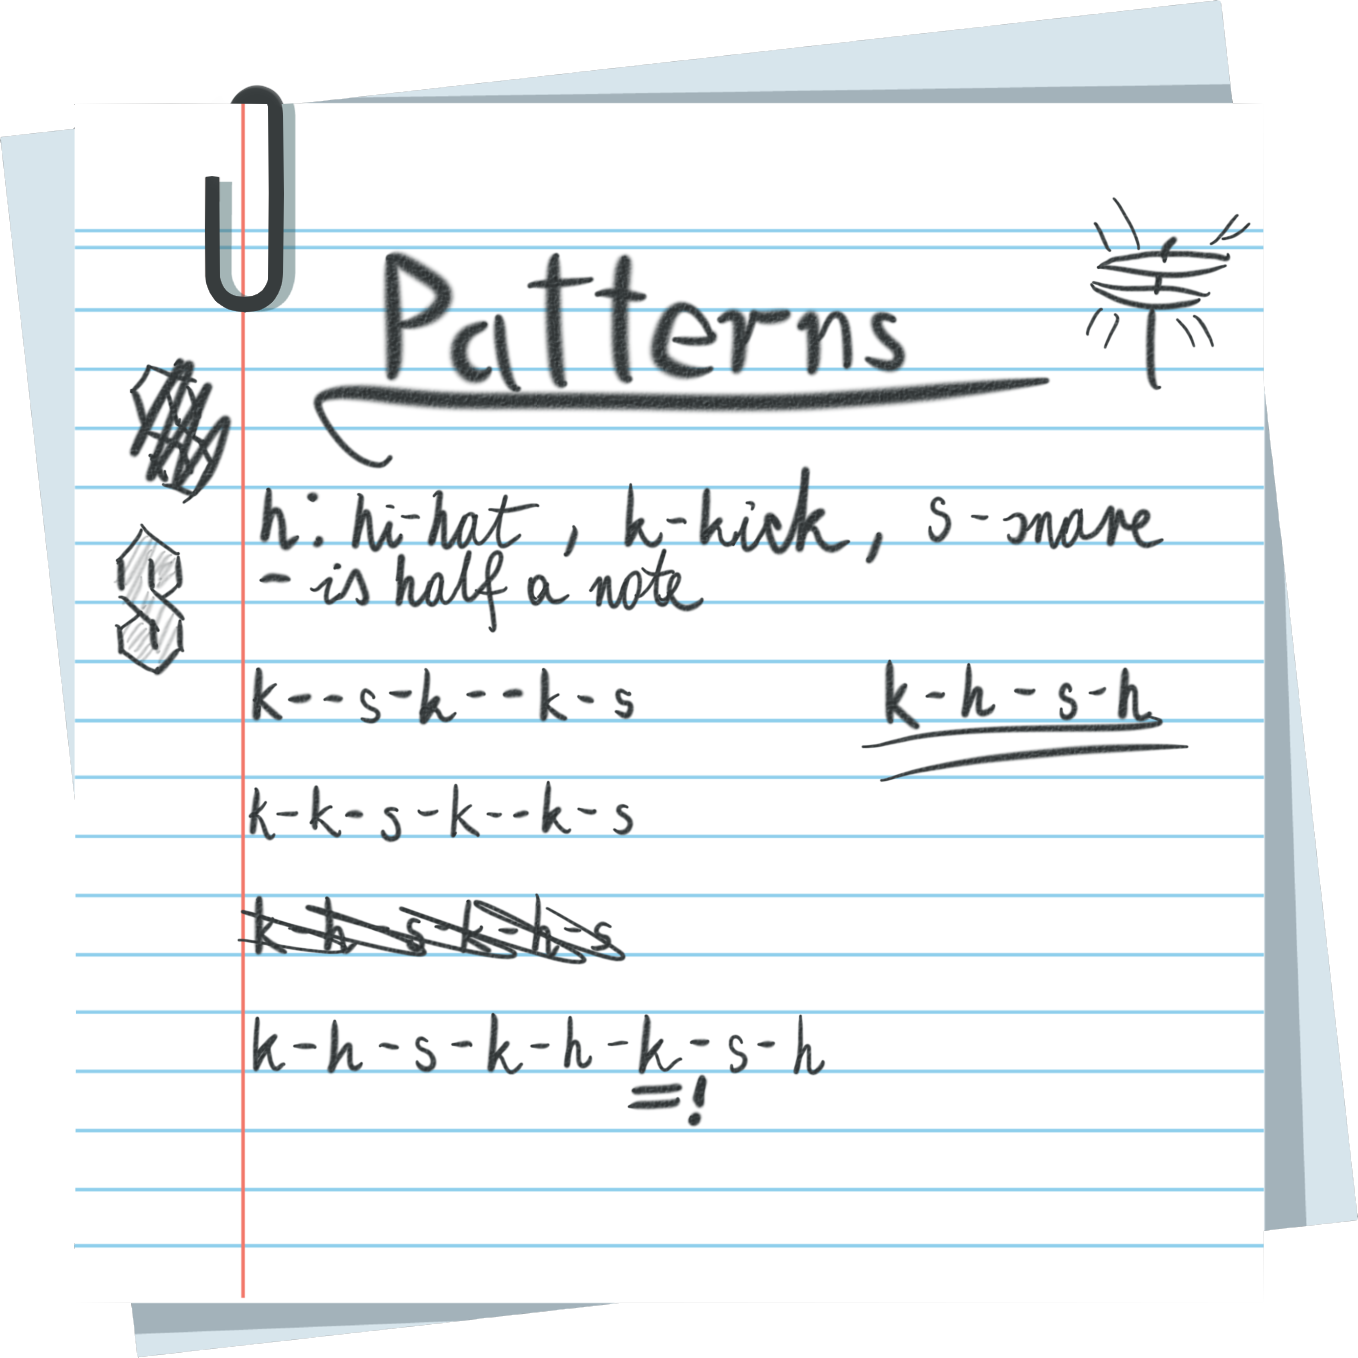 Patterns
h: hi-hat, k-kick, s-snare
- is half a note
k--s-k--k-s
k-h-s-h
k-k-s-k--k-s
k-h-s-k-h-s
k-h-s-k-h-k-s-h
=!